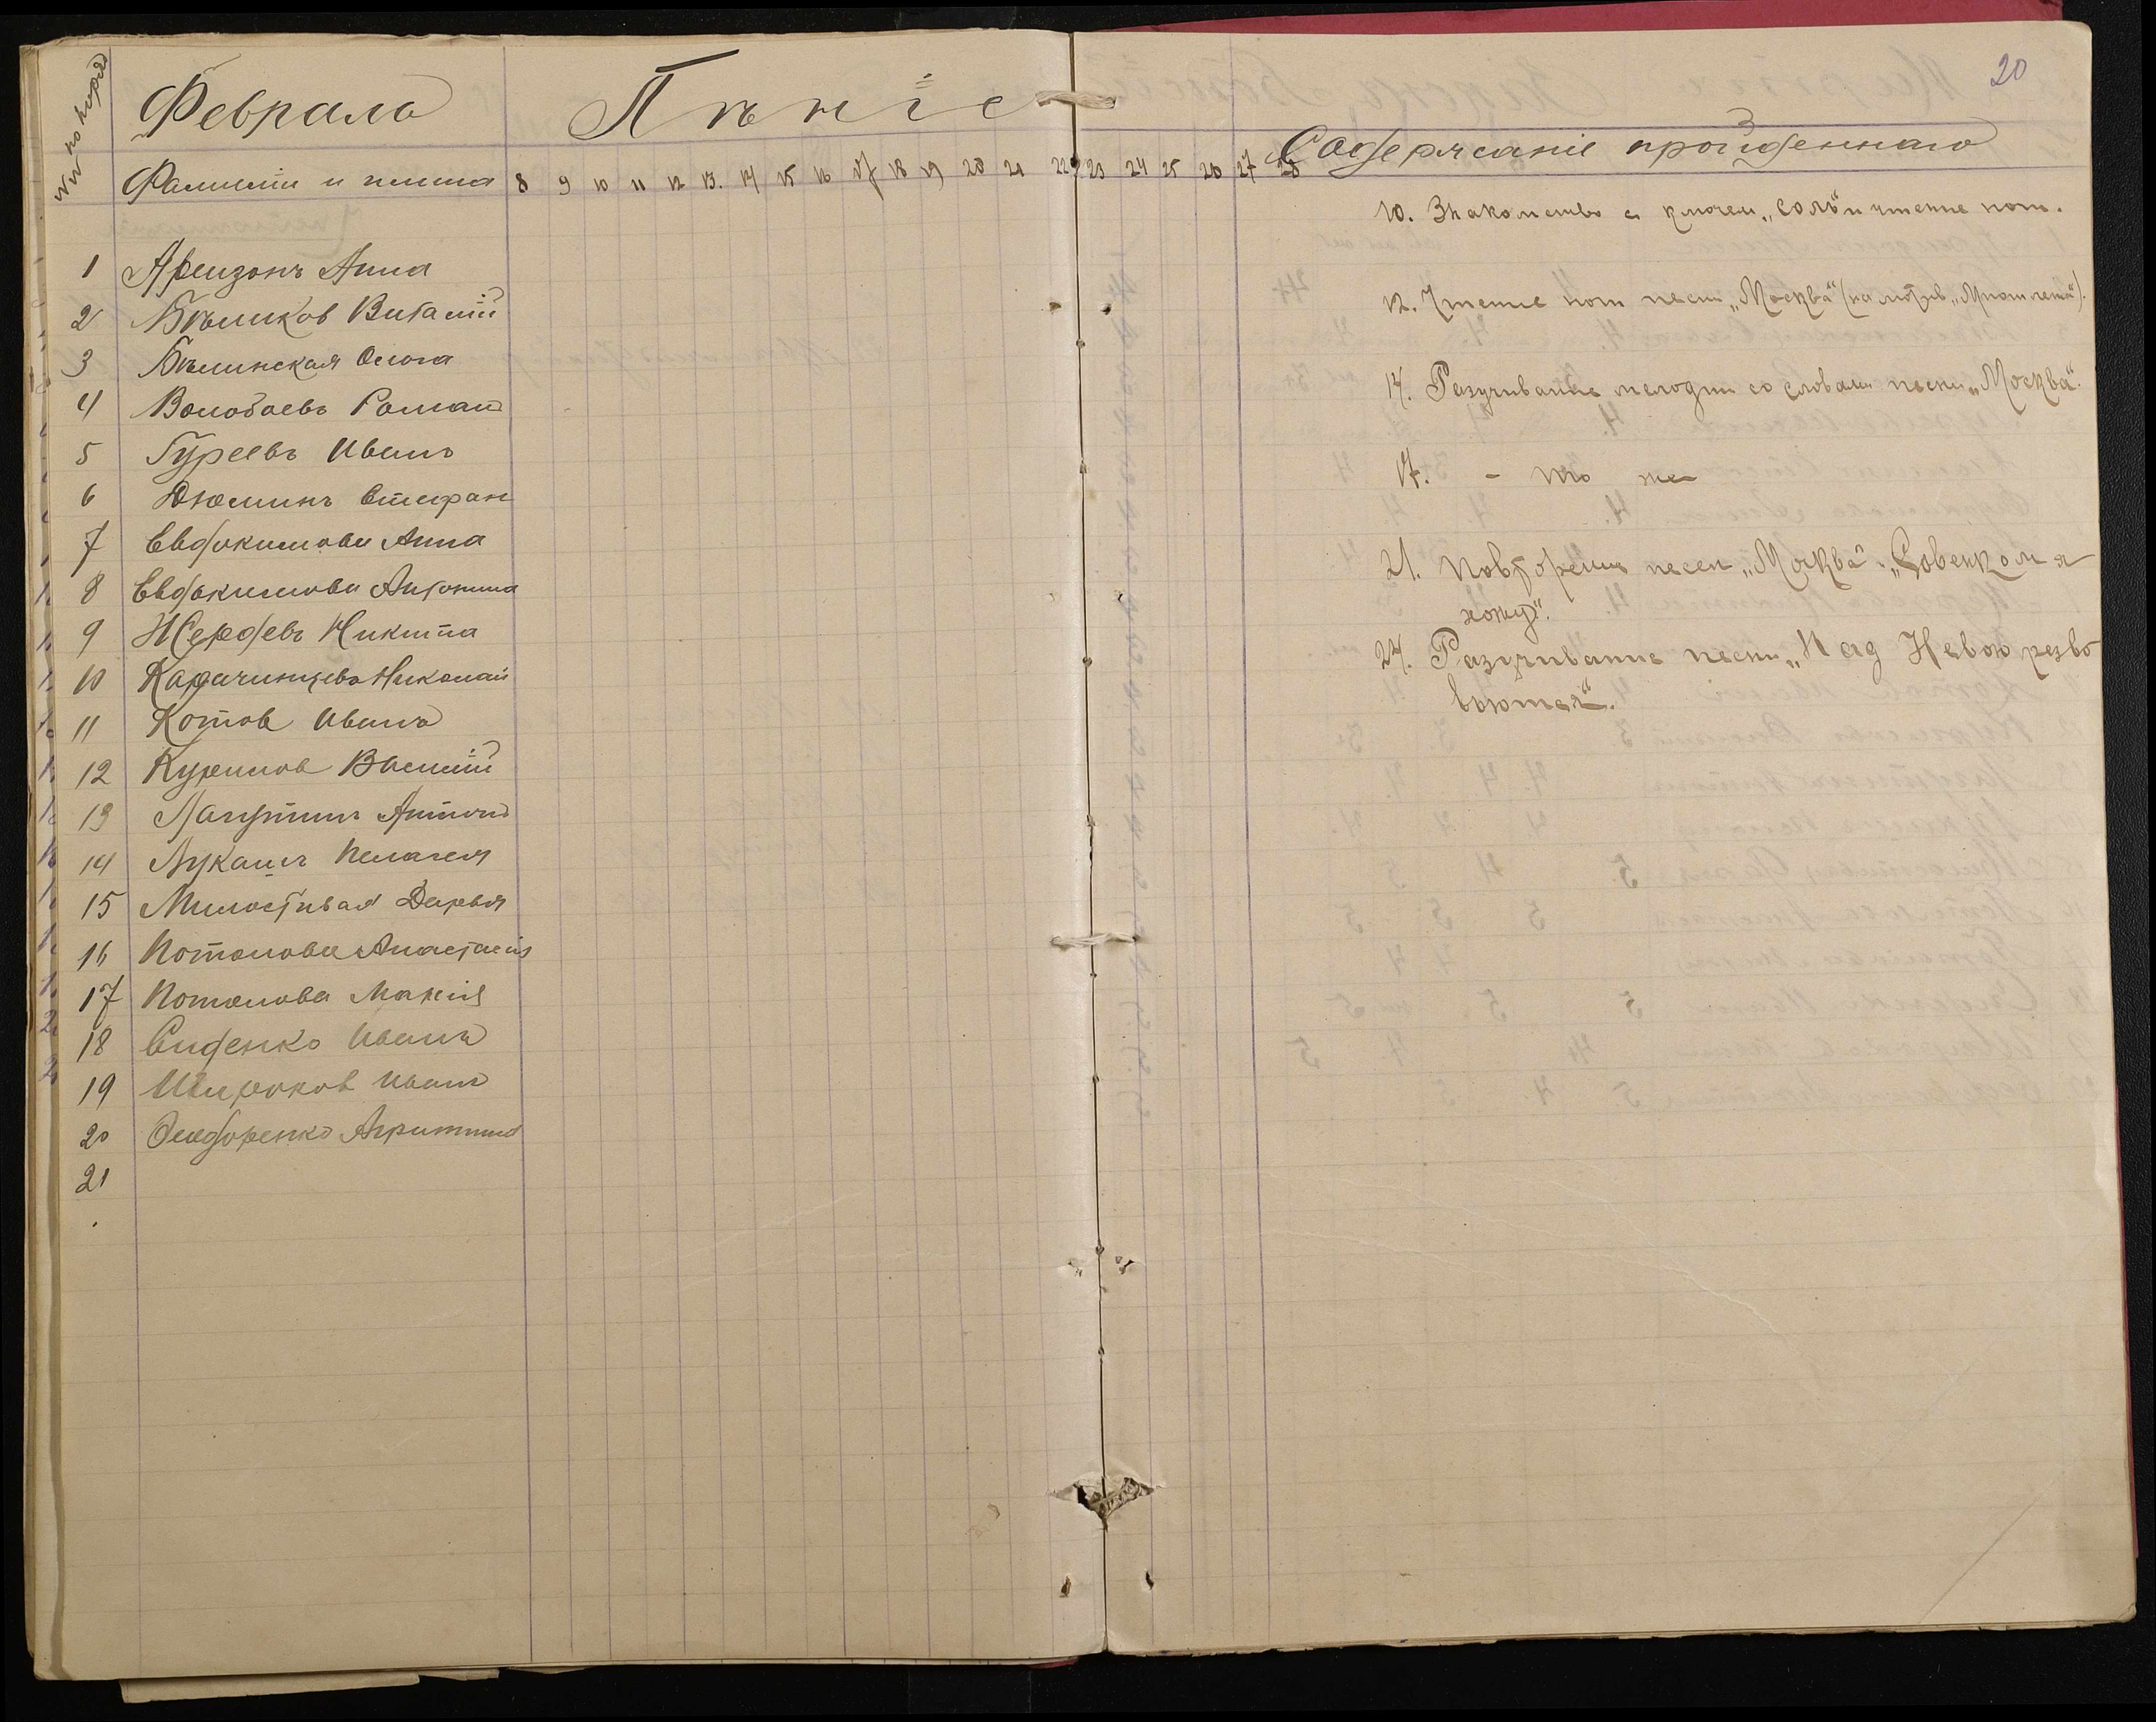 20
№№ по поряд
Февраль
Пѣніе
Содержаніе пройденнаго
Фамилiи и имена 8 9 10 11 12 13. 14 15 16 17 18 19 20 21 22 23 24 25 26 27 28
10. Знакомство с ключем „соль" и чтение нот.
1 Арензонъ Анна
12. Чтение нот песни „Москва" (на мотив „Многи лета").
2 Бѣликов Виталій
3 Бѣлинская Ольга
14. Разучивание мелодии со словами песни „Москва".
4 Волобоевъ Роман
5 Гуреевъ Иванъ
17. - то же
6 Дюминъ Стефан
7 Евдокимова Анна
21. Повторение песен „Москва" и „Совенком я
8 Евдокимова Антонина
хожу".
9 Жердевъ Никита
24. Разучивание песни „Над Невою резво
10 Карачинцевъ Николай
вьются".
11 Котов Иванъ
12 Курилов Василій
13 Лагутинъ Антонъ
14 Лукашъ Пелагея
15 Милостивая Дарья
16 Потапова Анастасія
17 Потапова Марія
18 Сиденко Иванъ
19 Широков Иванъ
20 Федоренко Агрипина
21